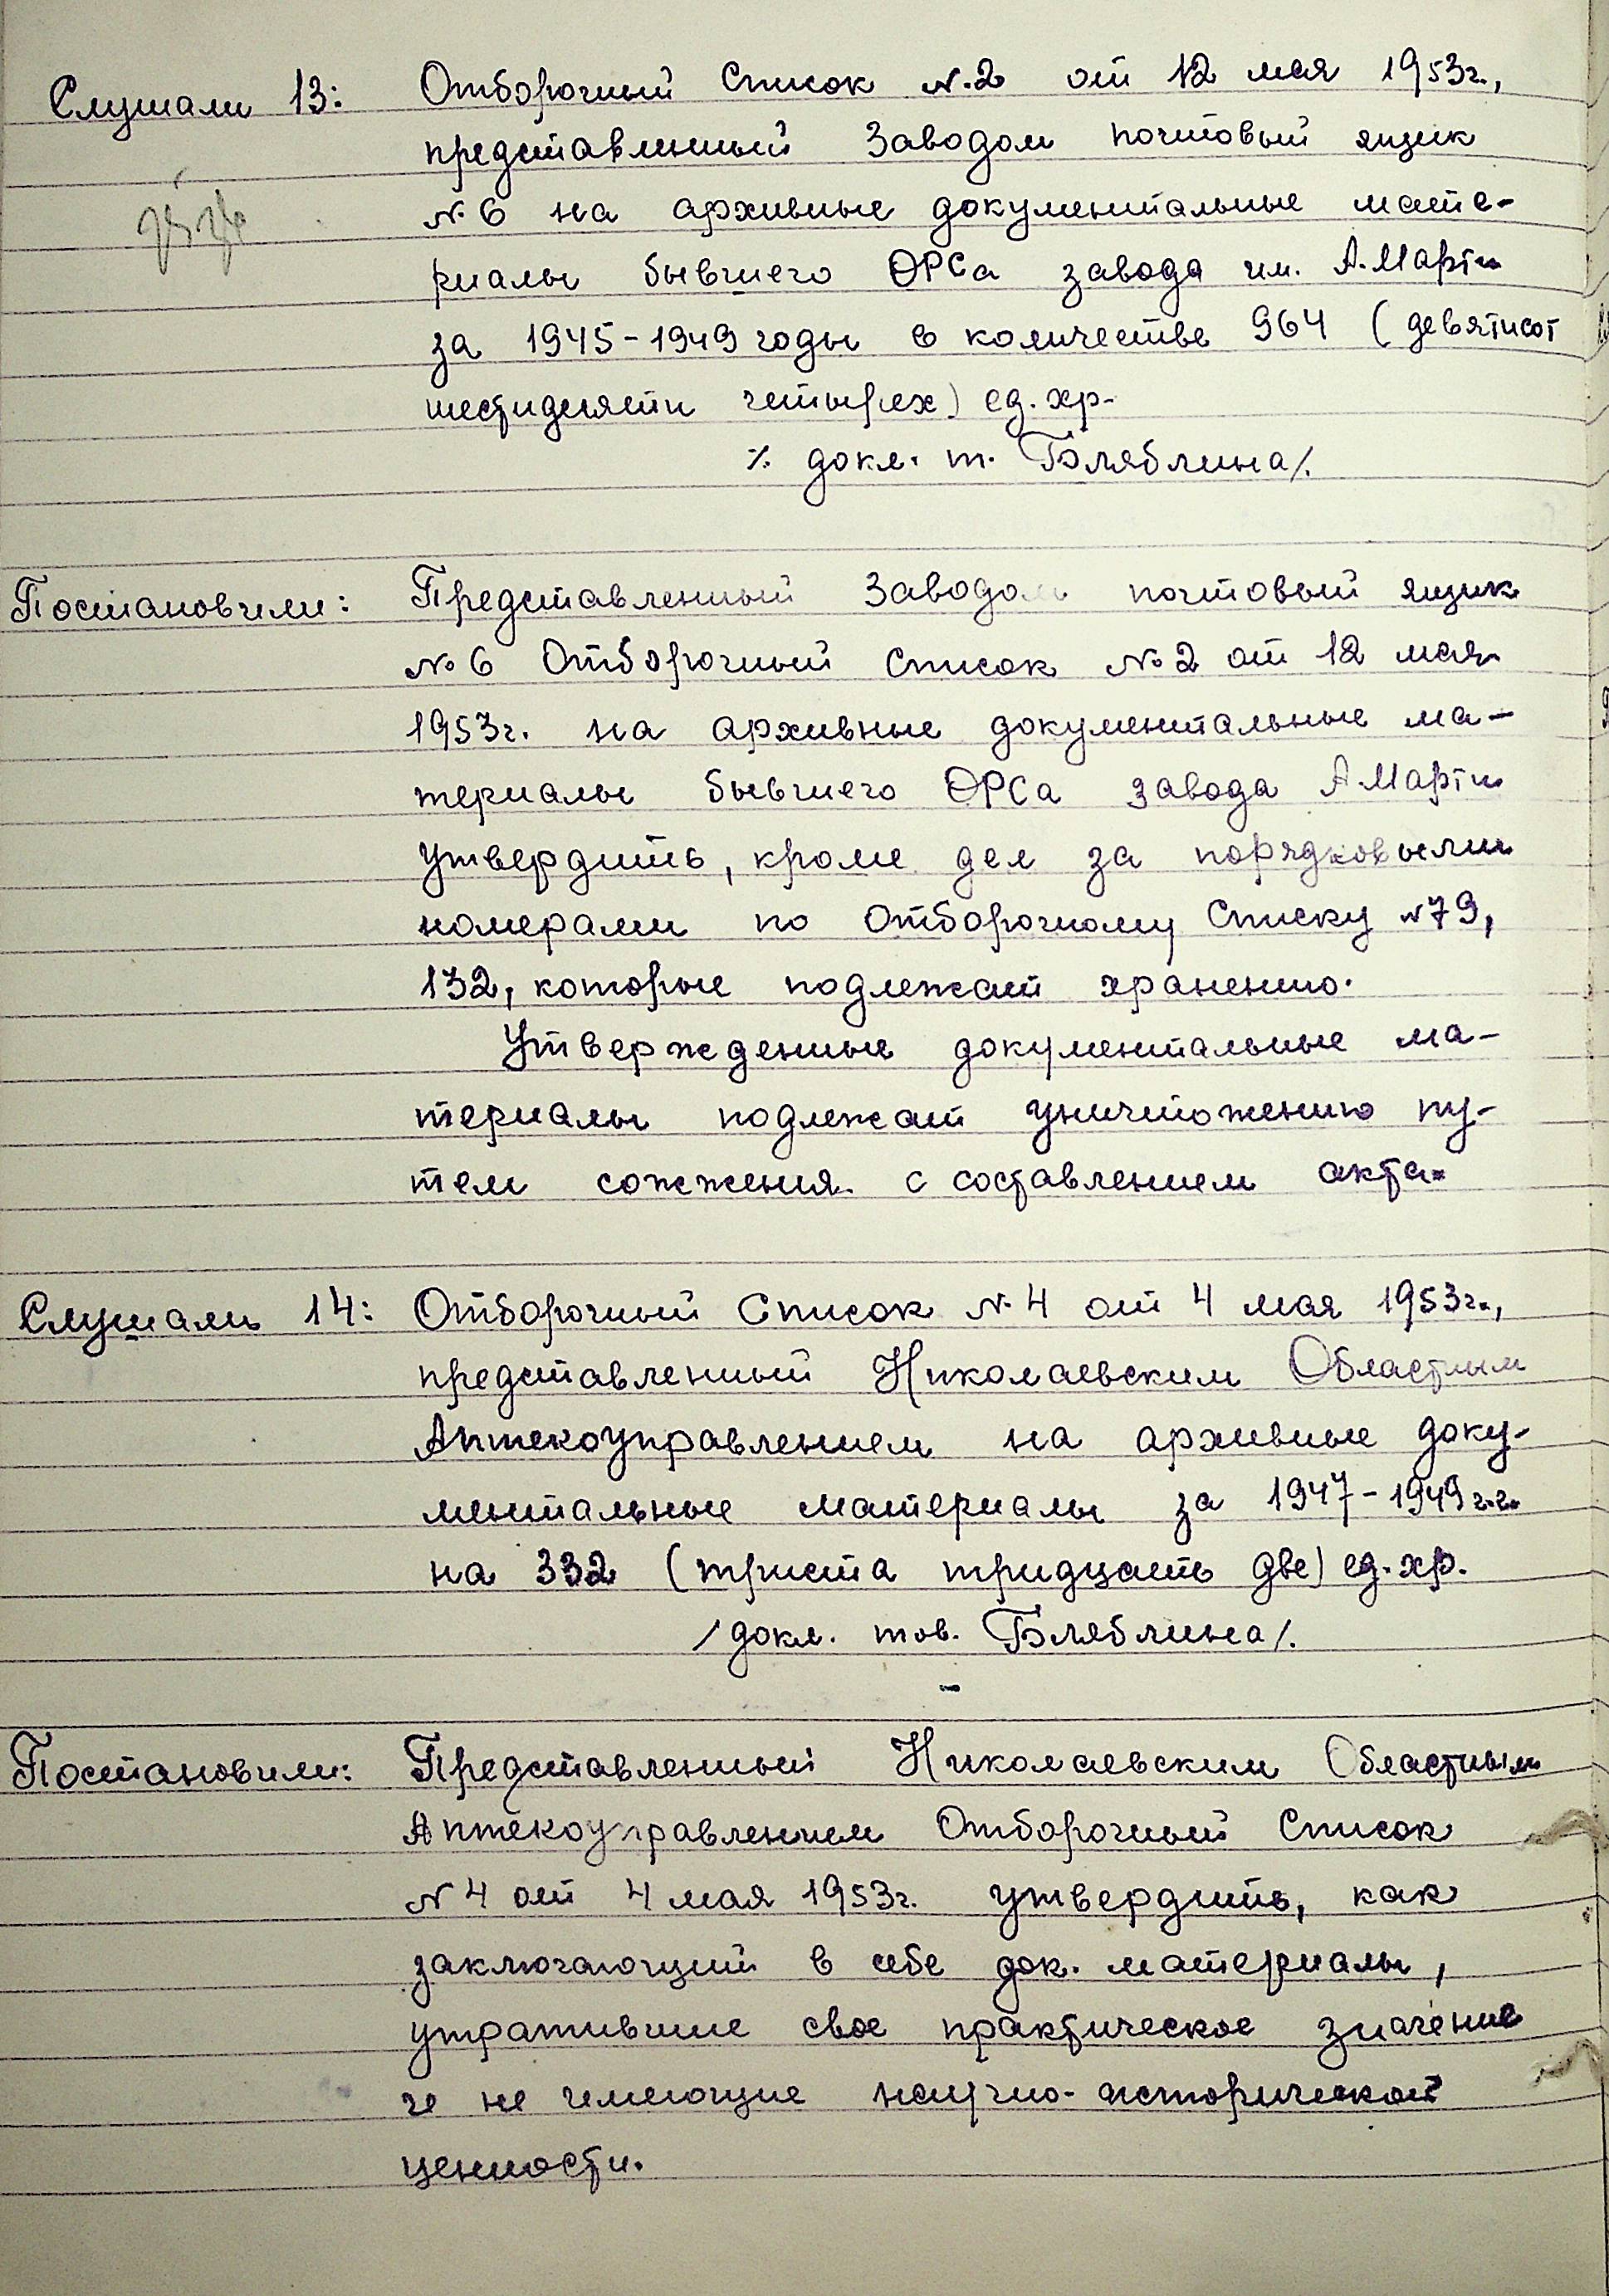 Слушали 13: Отборочный Список №2 от 12 мая 1953г.,
представленный Заводом почтовый ящик
№6 на архивные документальные мате-
риалы бывшего ОРСа завода им. А.Марти
за 1945-1949 годы в количестве 964 (девятисот
шестидесяти четырех) ед. хр.
/. докл. т. Бляблина/.
Постановили: Представленный Заводом почтовый ящик
№6 Отборочный Список №2 от 12 мая
1953г. на архивные документальные ма-
териалы бывшего ОРСа завода А.Марти
утвердить, кроме дел за порядковыми
номерами по Отборочному Списку №79,
132, которые подлежат хранению.
Утвержденные документальные ма-
териалы подлежат уничтожению пу-
тем сожжения с составлением акта.
Слушали 14: Отборочный Список №4 от 4 мая 1953г.,
представленный Николаевским Областным
Аптекоуправлением на архивные доку-
ментальные материалы за 1947-1949 г.г.
на 332 (триста тридцать две) ед. хр.
/докл. тов. Бляблина/.
Постановили: Представленный Николаевским Областным
Аптекоуправлением Отборочный Список
№4 от 4 мая 1953г. утвердить, как
заключающий в себе док. материалы,
утратившие свое практическое значение
и не имеющие научно-исторической
ценности.